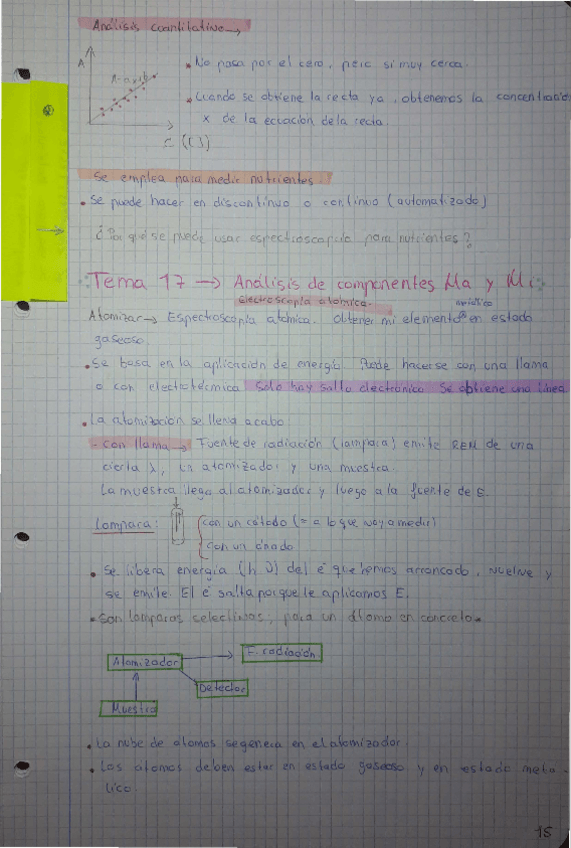 Análisis cuantitativo →
A
• No pasa por el cero, pero si muy cerca.
• Cuando se obtiene la recta ya, obtenemos la concentración
x de la ecuación de la recta.
C ([ ])
Se emplea para medir nutrientes.
• Se puede hacer en discontinuo o continuo (automatizado)
¿Por qué se puede usar espectroscopía para nutrientes?
Tema 17 → Análisis de componentes Ma y Mi
electroscopía atómica.
Atomizar → Espectroscopía atómica. Obtener mi elemento en estado
gaseoso.
• Se basa en la aplicación de energía. Puede hacerse con una llama
o con electrotérmica. Solo hay salto electrónico. Se obtiene una línea
• La atomización se lleva a cabo
- con llama → Fuente de radiación (lampara) emite REM de una
cierta λ, un atomizador y una muestra.
La muestra llega al atomizador y luego a la fuente de E.
Lampara:
con un cátodo (= a lo que voy a medir)
con un ánodo
• Se libera energía (h ν) del e⁻ que hemos arrancado, vuelve y
se emite. El e⁻ salta porque le aplicamos E.
• Son lamparas selectivas, para un átomo en concreto.
Atomizador
F. radiación
Detector
Muestra
• La nube de átomos se genera en el atomizador.
• Los átomos deben estar en estado gaseoso y en estado meta-
lico.
18